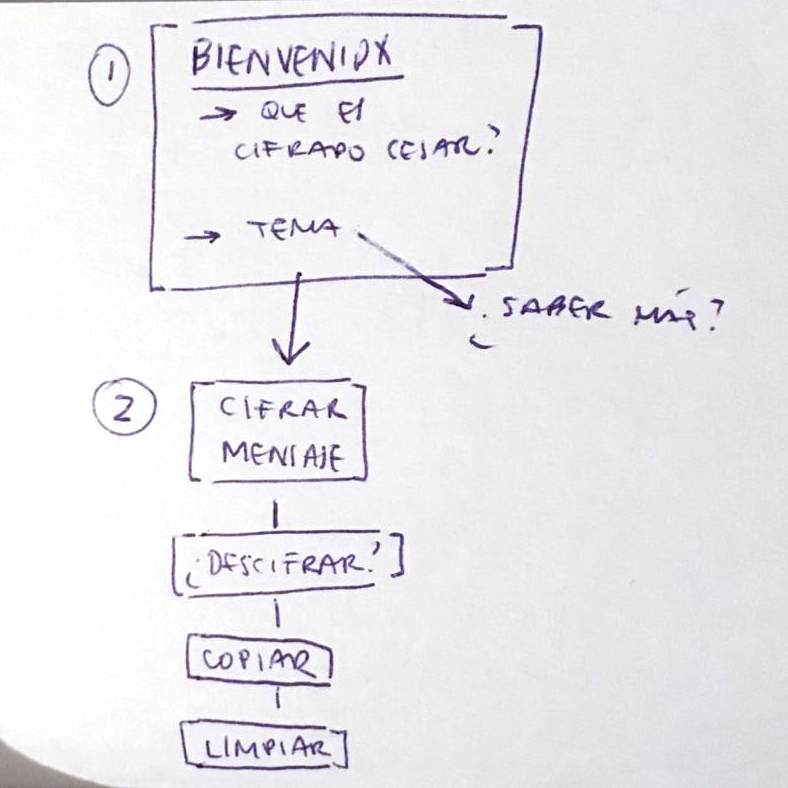 1
BIENVENIDX
→ QUE ES
CIFRADO CESAR?
→ TEMA
¿SABER MÁS?
2
CIFRAR
MENSAJE
¿DESCIFRAR?
COPIAR
LIMPIAR